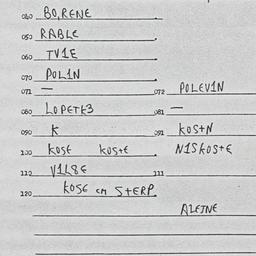 040 BO,RENE
050 RABLE
060 TV1E
070 POL1N
071 — 072 POLEV1N
080 LOPETE3 081 —
090 K 091 KOSTN
100 KOSE KOSTE N1SKOSTE
110 V1L8E 111
120 KOSE CM STERP
ALETNE